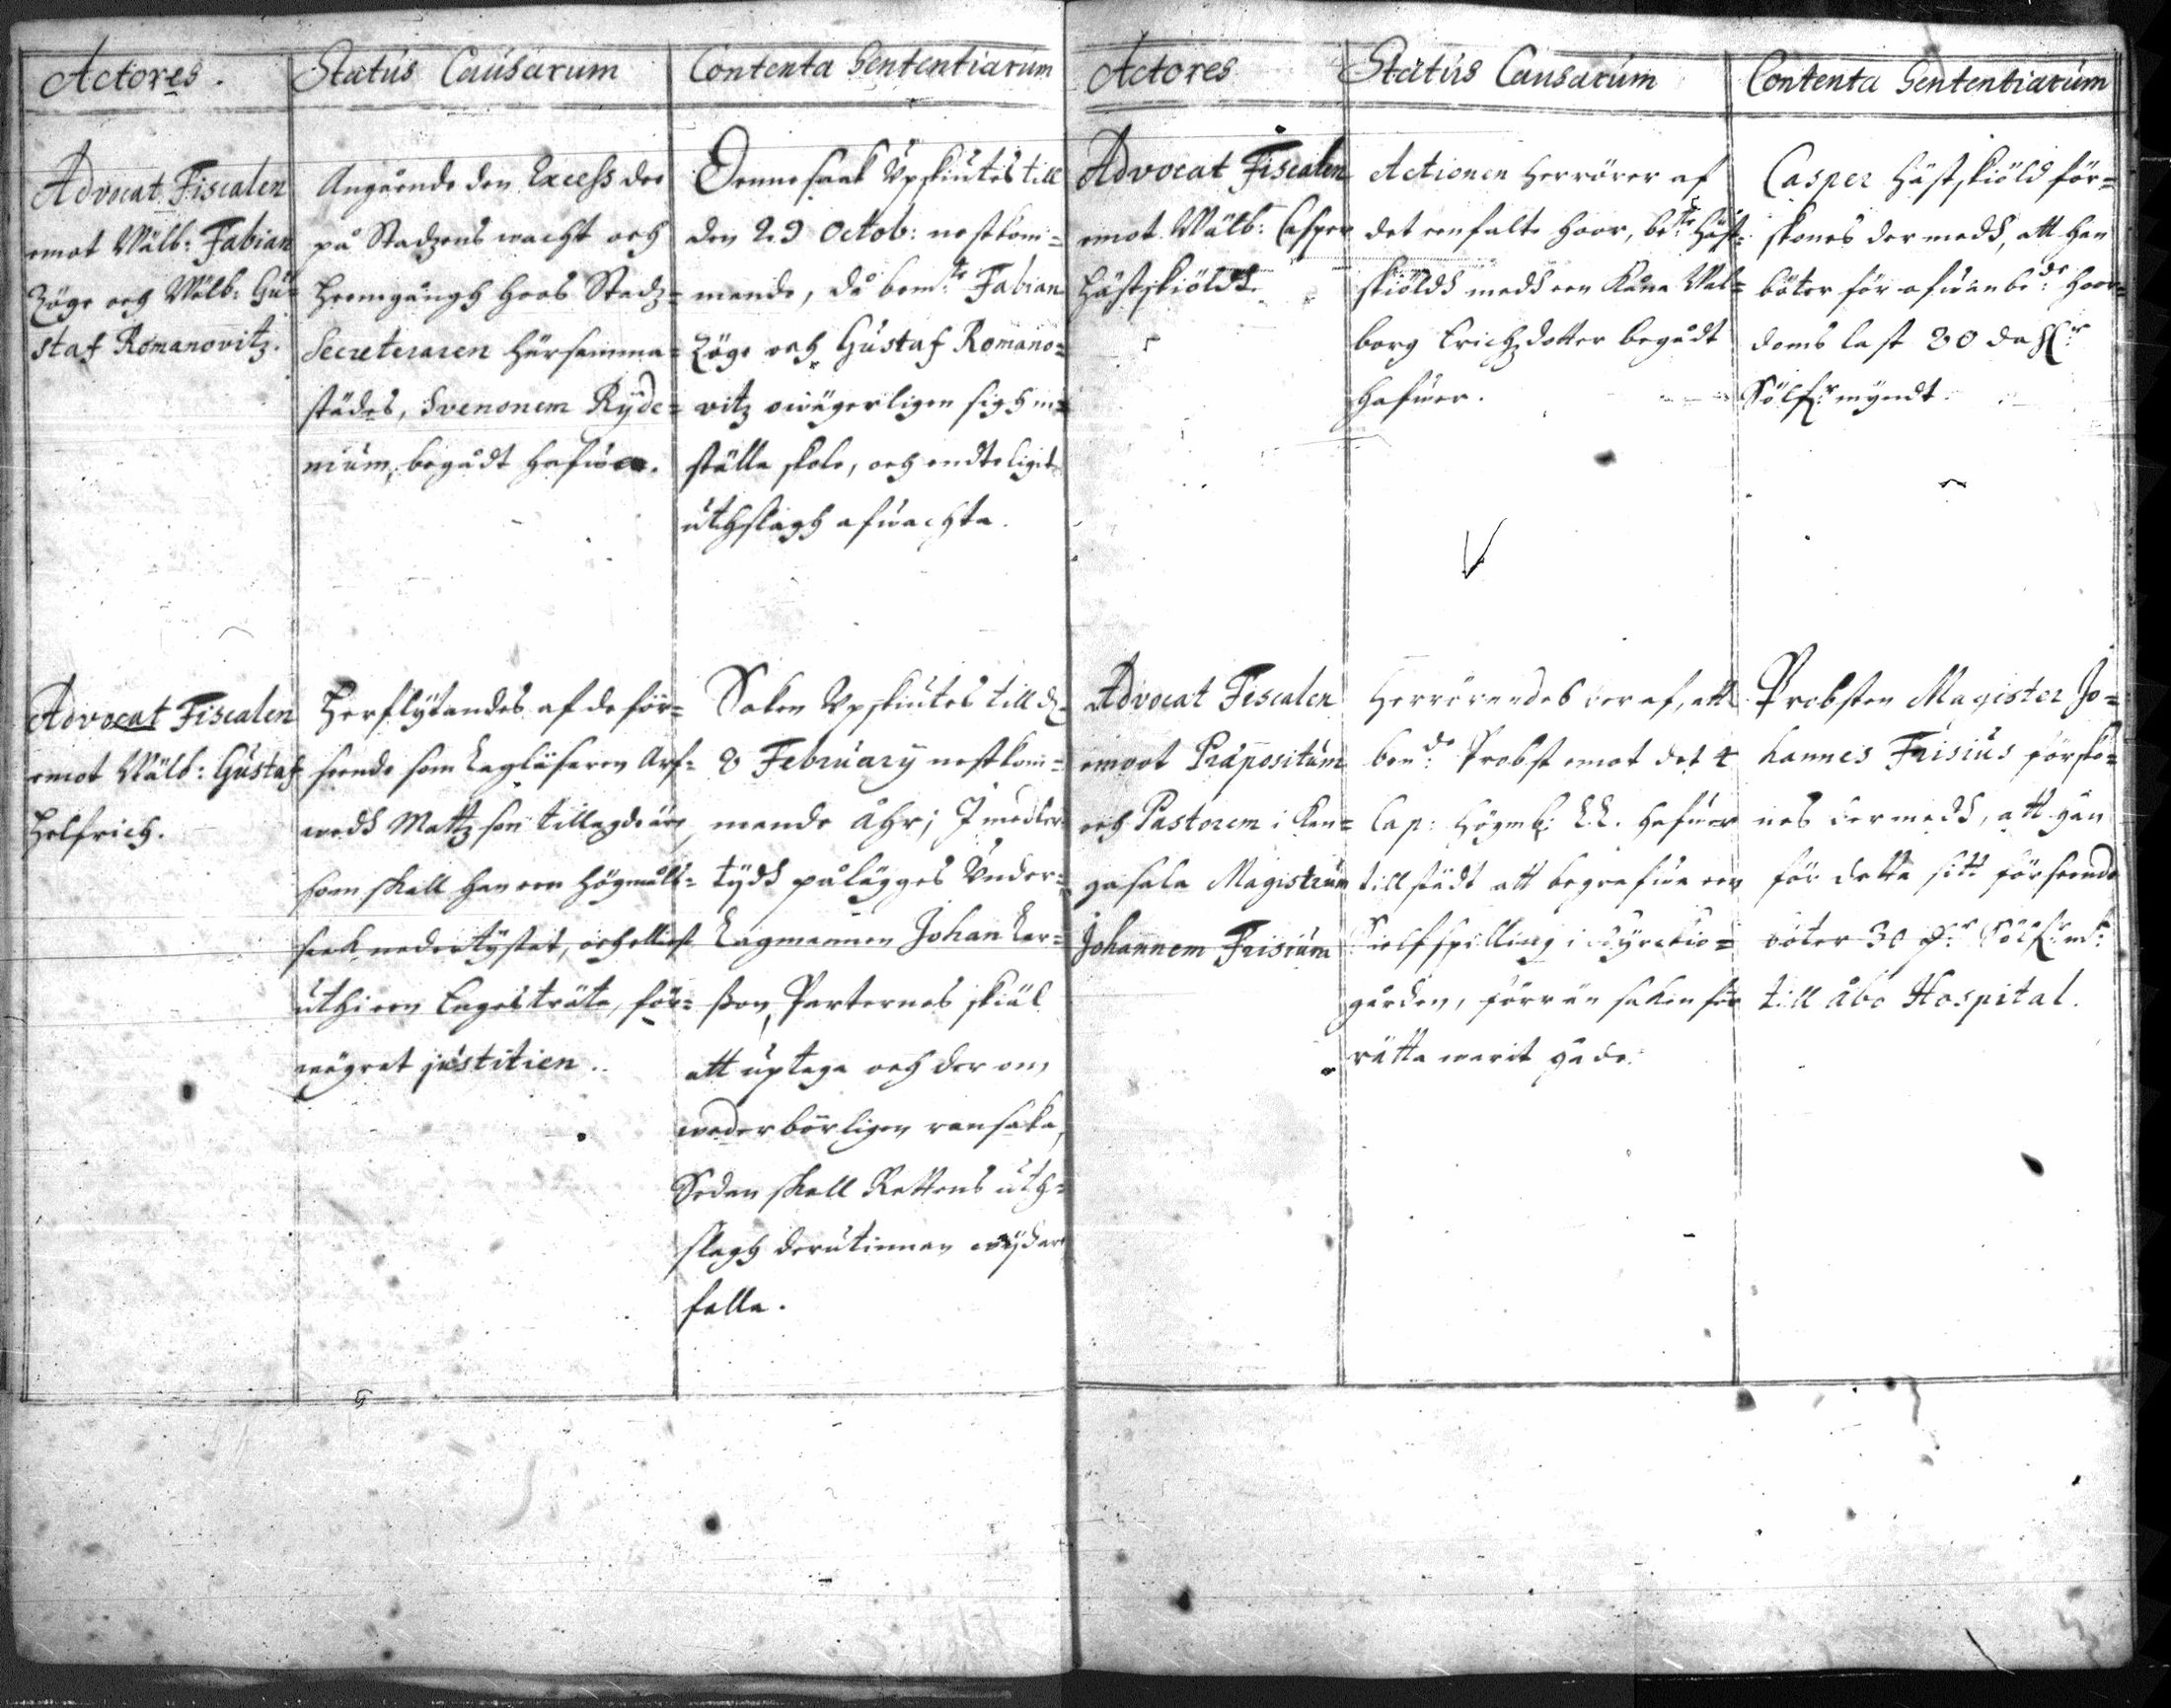 Actores.
Status Causarum
Contenta Sententiarum
Advocat Fiscalen
emot Wälb: Fabian
Zöge och Wälb: Gu=
staf Romanovitz.
Angående den Excess de
på Stadzens wacht och
Heemgångh hoos Stadz=
Secreteraren härsamma=
städes, Svenonem Ryde=
nium, begådt hafwa.
Denne saak Vpskiutes till
den 29 Octob: nestkom=
mande, då bem:te Fabian
Zöge och Gustaf Romano=
vitz owägerligen sigh in=
ställa skole, och endteligit
uthslagh afwachta.
Advocat Fiscalen
emot Wälb: Gustaf
Helfrich.
Herflytandes af de för=
seende som Lagläsaren Arf=
wedh Mattzson tillagde äre,
som skall han een Högmåls=
saak nedertystat, och elliest
uthi een Lagesträte, för=
wägrat justitien.
Saken Vpskiutes till d.
8 February nestkom=
mande Åhr; Imedler=
tydh pålägges Under=
Lagmannen Johan Lar=
sson, Parternes skiäl
att uptaga och der om
wederbörligen ransaka,
Sedan skall Rettens uth=
slagh derutinnan wydare
falla.
Actores
Status Causarum
Contenta Sententiarum
Advocat Fiscalen
emot Wälb: Casper
Hästskiöldh
Actionen herrörer af
det eenfalte hoor, be:te Häst=
skiöldh medh een Kåna Wal=
borg Erichzdotter begådt
hafwer.
Casper Hästskiöld för=
skones der medh, att han
böter för ofwanbe:de Hoor=
doms last 80 da:r
Sölf:r myndt.
Advocat Fiscalen
emoot Præpositum
och Pastorem i Kan=
gasala Magistrum
Johannem Frisium
Herrörendes deraf, att
bem:de Probst emot det 4
Cap: Högmb: L.L. hafwer
tillstädt att begrafwa een
Sielfspilling i Kyrckio=
gården, förr än saken för
rätta warit hade.
Probsten Magister Jo=
hannes Frisius försko=
nes dermedh, att han
för detta sitt förseende
böter 30 d:r Sölf:r m:t
till Åbo Hospital.